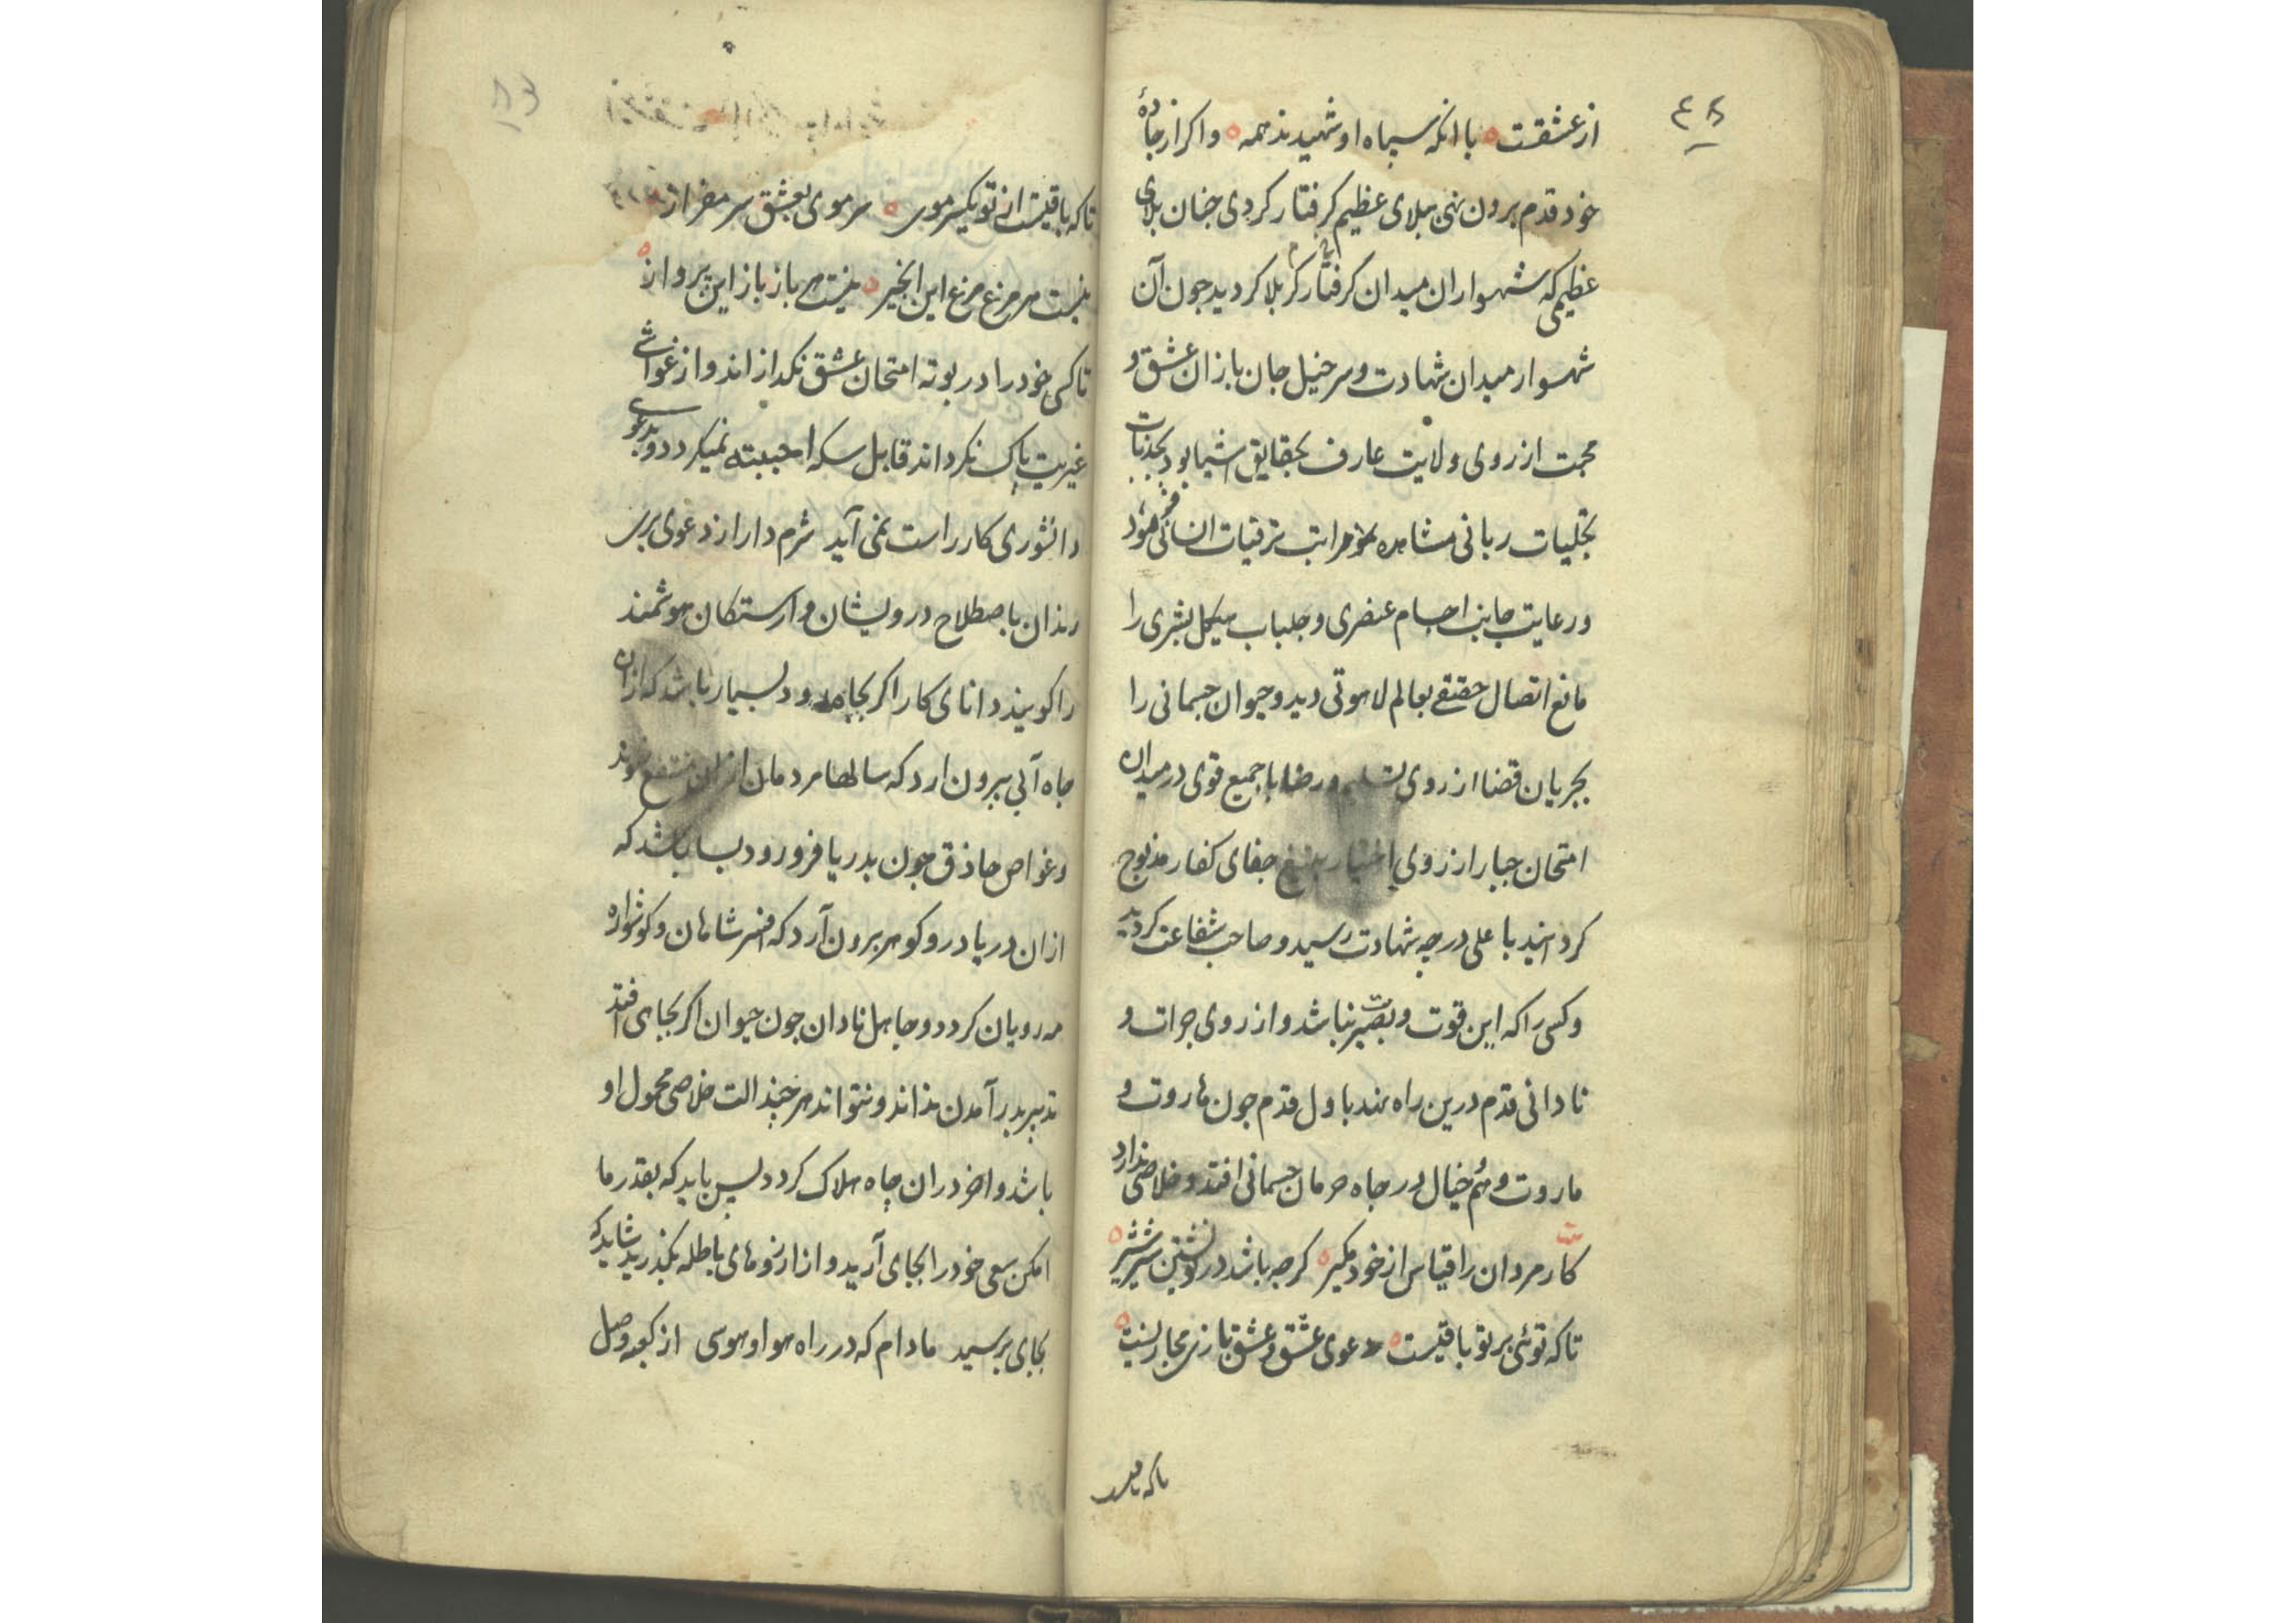 ۴۸
از عشقت با انکه سپاه او شهیدند همه واکر از جادهٔ
خود قدم برون نهی ببلای عظیم کرفتار کردی جنان بلای
عظیمی که شهسواران میدان کرفتار کربلا کردید جون آن
شهسوار میدان شهادت و سرخیل جان بازان عشق و
محبت از روی ولایت عارف بحقایق اشیا بود بجذبات
تجلیات ربانی مشاهده مراتب ترقیات
ورعایت جانب اجسام عنصری و جلباب هیکل بشری را
مانع اتصال حقیقی بعالم لاهوتی دید و حیوان جسمانی را
بجریان قضا از روی تسلیم و رضا با جمیع قوی در میدان
امتحان جبار از روی اختیار بتیغ جفای کفار مذبوح
کردانید با علی درجه شهادت رسید و صاحب شفاعت کردید
وکسی را که این قوت و بصیرت نباشد و از روی جرات و
نادانی قدم درین راه نهد باول قدم جون هاروت و
ماروت وهم خیال در جاه حرمان جسمانی افتد و خلاصی ندارد
کار مردان را قیاس از خود مکیر کرجه باشد در نوشتن شیر شیر
تا که توئی بر تو باقیست دعوی عشق و عشق بازی مجاز نیست
تا که باقیست از تو یکسر موی سر موی بعشق سر مفراز
نیست هر مرغ مرغ این انجیر نیست هر باز باز این پرواز
تا کسی خود را در بوته امتحان عشق نکدازاند و از غواشی
غیریت پاک نکرداند قابل سکه احببته نمیکردد و بدعوی
دانشوری کار راست نمی آید شرم دار از دعوی برس
رندان باصطلاح درویشان وارستکان هوشمند
را کویند دانای کار اکر بجاه رود بسیار باشد که ازان
جاه آبی بیرون ارد که سالها مردمان ازان منتفع شوند
وغواص حاذق جون بدریا فرو رود بسا باشد که
ازان دریا در و کوهر برون آرد که افسر شاهان و کوشواره
مه رویان کردد و جاهل نادان جون حیوان اکر بجاهی افتد
تدبیر بدر آمدن نداند و نتواند هرجند الت خلاصی محمول او
باشد و اخر دران جاه هلاک کردد پس باید که بقدر ما
امکن سعی خود را بجای آرید و از ارزوهای باطله بکذرید شاید که
بجای برسید مادام که در راه هوا و هوسی از کعبه وصل